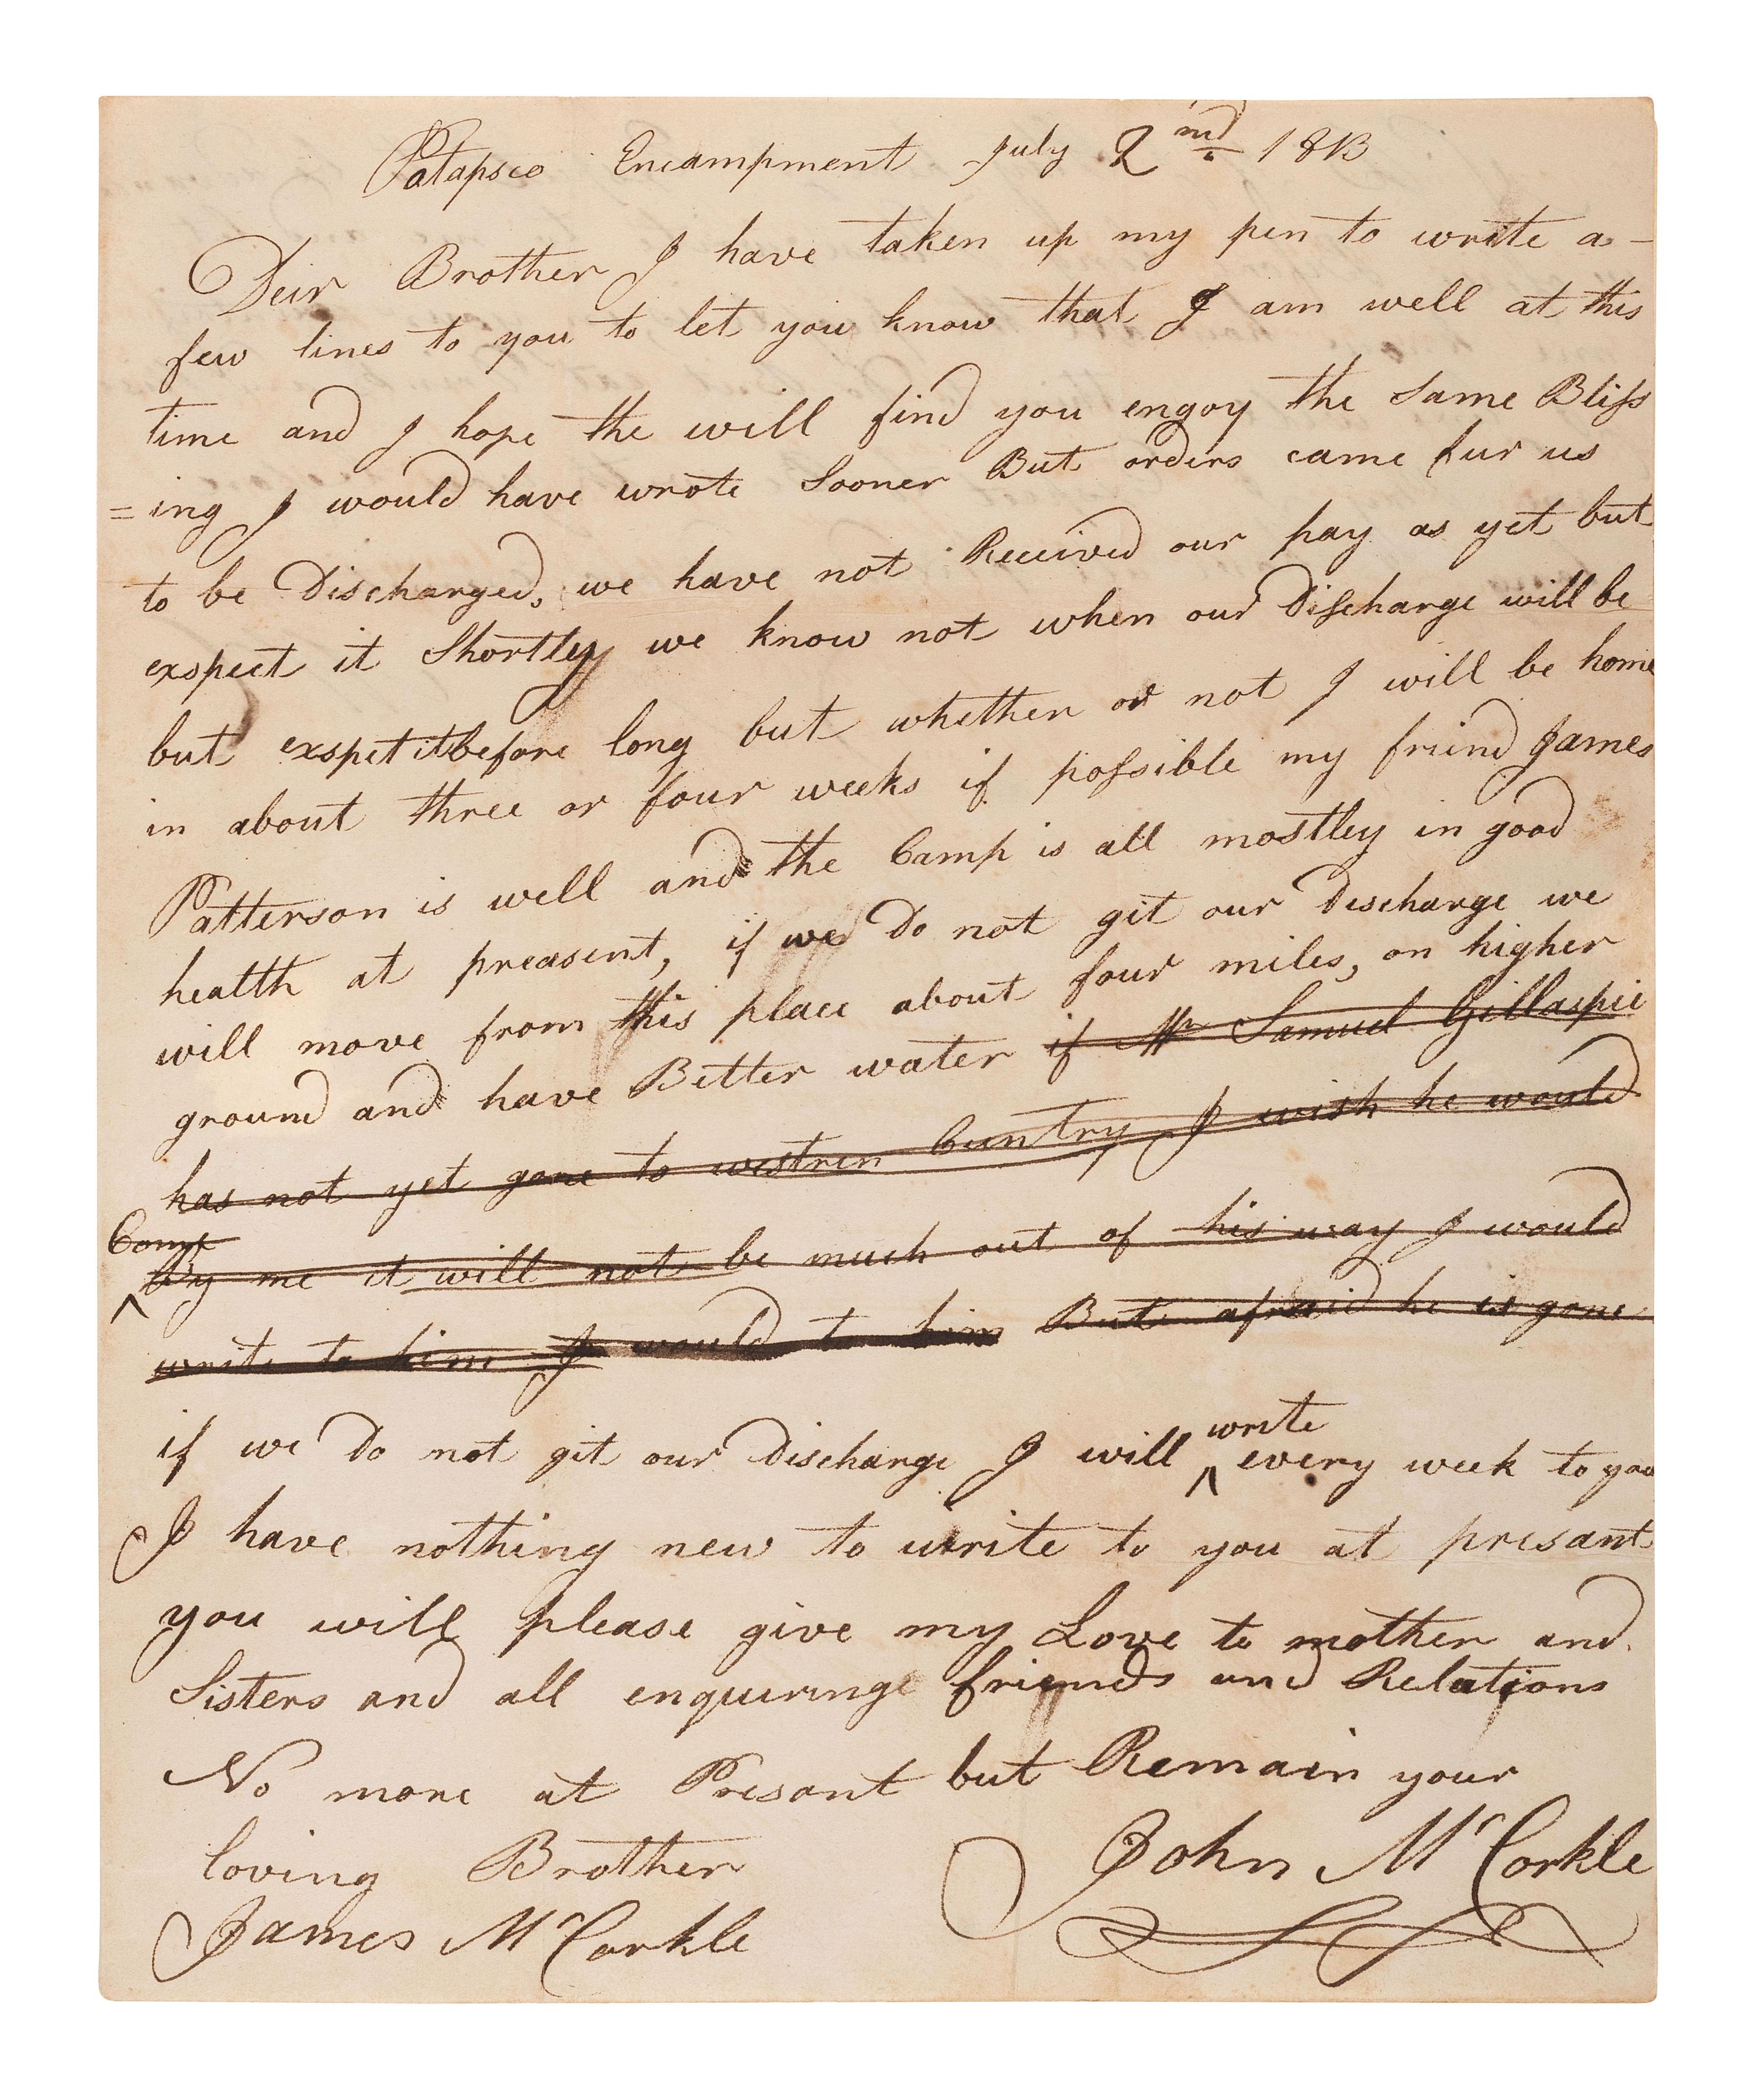 Patapsco Encampment July 2nd 1813
Deir Brother I have taken up my pen to write a-
few lines to you to let you know that I am well at this
time and I hope the will find you engoy the Same Bliss
=ing I would have wrote Sooner But orders came fur us
to be Discharged, we have not Received our pay as yet but
exspect it Shortley we know not when our Discharge will be
but exspet it before long but whether or not I will be home
in about three or four weeks if possible my friend James
Patterson is well and the Camp is all mostley in good
health at preasent, if we Do not git our Discharge we
will move from this place about four miles, on higher
ground and have Better water if Mr Samuel Gillaspie
has not yet gone to westren Cuntry I wish he would
Come
by me it will not be much out of his way I would
write to him I would to him But afraid he is gone
if we Do not git our Discharge I will write every week to you
I have nothing new to write to you at presant
you will please give my Love to mother and
Sisters and all enquiringe friends and Relations
No more at Presant but Remain your
loving Brother John McCorkle
James McCorkle